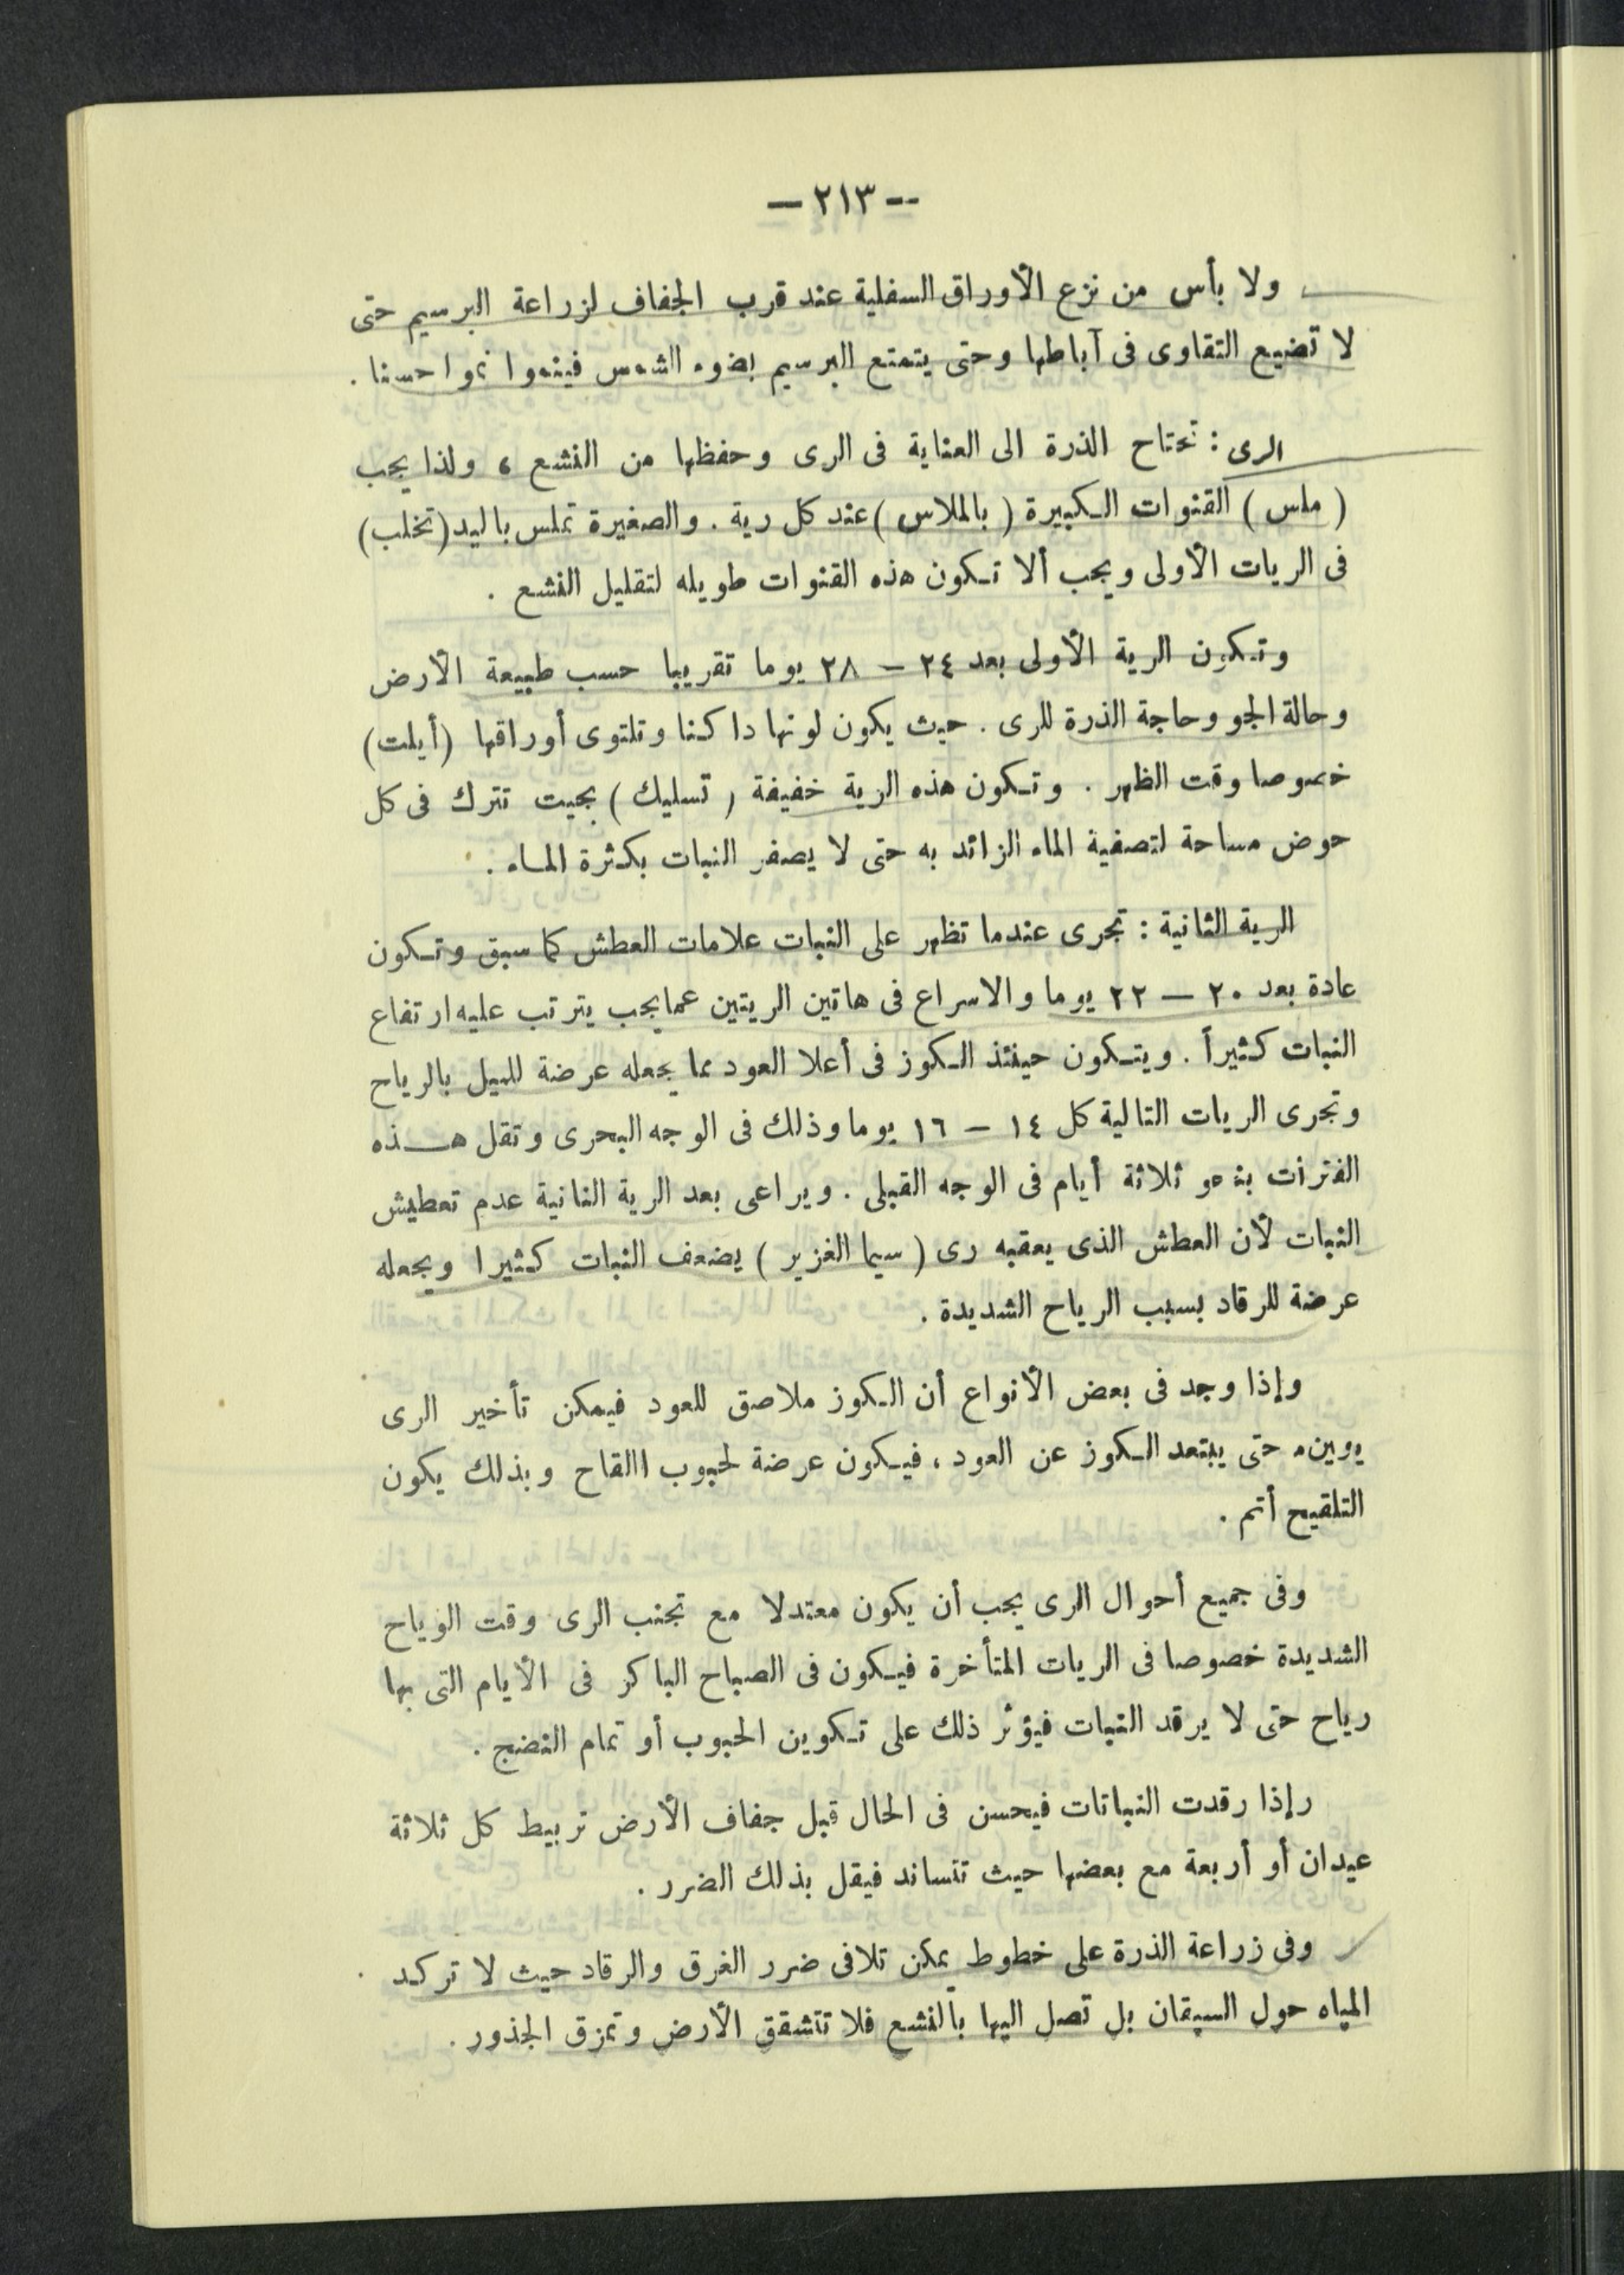 -- ٢١٣ —
ولا بأس من نزع الأوراق السفلية عند قرب الجفاف لزراعة البرسيم حتى
لا تضيع التقاوى فى آباطها وحتى يتمتع البرسيم بضوء الشمس فينموا نموا حسنا .
الرى : تحتاج الذرة الى العناية فى الرى وحفظها من النشع ، ولذا يجب
( ملس ) القنوات الكبيرة ( بالملاس ) عند كل رية . والصغيرة تملس باليد ( تخلب )
فى الريات الأولى ويجب ألا تكون هذه القنوات طويله لتقليل النشع .
وتكون الرية الأولى بعد ٢٤ – ٢٨ يوما تقريبا حسب طبيعة الأرض
وحالة الجو وحاجة الذرة للرى . حيث يكون لونها داكنا وتلتوى أوراقها (أيلت)
خصوصا وقت الظهر . وتكون هذه الرية خفيفة ( تسليك ) بحيت تترك فى كل
حوض مساحة لتصفية الماء الزائد به حتى لا يصفر النبات بكثرة الماء .
الرية الثانية : تجرى عندما تظهر على النبات علامات العطش كما سبق وتكون
عادة بعد ٢٠ — ٢٢ يوما والاسراع فى هاتين الريتين عما يجب يترتب عليه ارتفاع
النبات كثيراً . ويتكون حينئذ الكوز فى أعلا العود مما يجعله عرضة للميل بالرياح
وتجرى الريات التالية كل ١٤ – ١٦ يوما وذلك فى الوجه البحرى وتقل هذه
الفترات بنحو ثلاثة أيام فى الوجه القبلى . ويراعى بعد الرية الثانية عدم تعطيش
النبات لأن العطش الذى يعقبه رى ( سيما الغزير ) يضعف النبات كثيرا ويجعله
عرضة للرقاد بسبب الرياح الشديدة .
وإذا وجد فى بعض الأنواع أن الكوز ملاصق للعود فيمكن تأخير الرى
يومين حتى يبتعد الكوز عن العود ، فيكون عرضة لحبوب االقاح وبذلك يكون
التلقيح أتم .
وفى جميع أحوال الرى يجب أن يكون معتدلا مع تجنب الرى وقت الرياح
الشديدة خصوصا فى الريات المتأخرة فيكون فى الصباح الباكر فى الأيام التى بها
رياح حتى لا يرقد النبات فيؤثر ذلك على تكوين الحبوب أو تمام النضج .
رإذا رقدت النباتات فيحسن فى الحال قبل جفاف الأرض تربيط كل ثلاثة
عيدان أو أربعة مع بعضها حيث تتساند فيقل بذلك الضرر .
وفى زراعة الذرة على خطوط يمكن تلافى ضرر الغرق والرقاد حيث لا تركد
المياه حول السيقان بل تصل اليها بالنشع فلا تتشقق الأرض وتمزق الجذور .